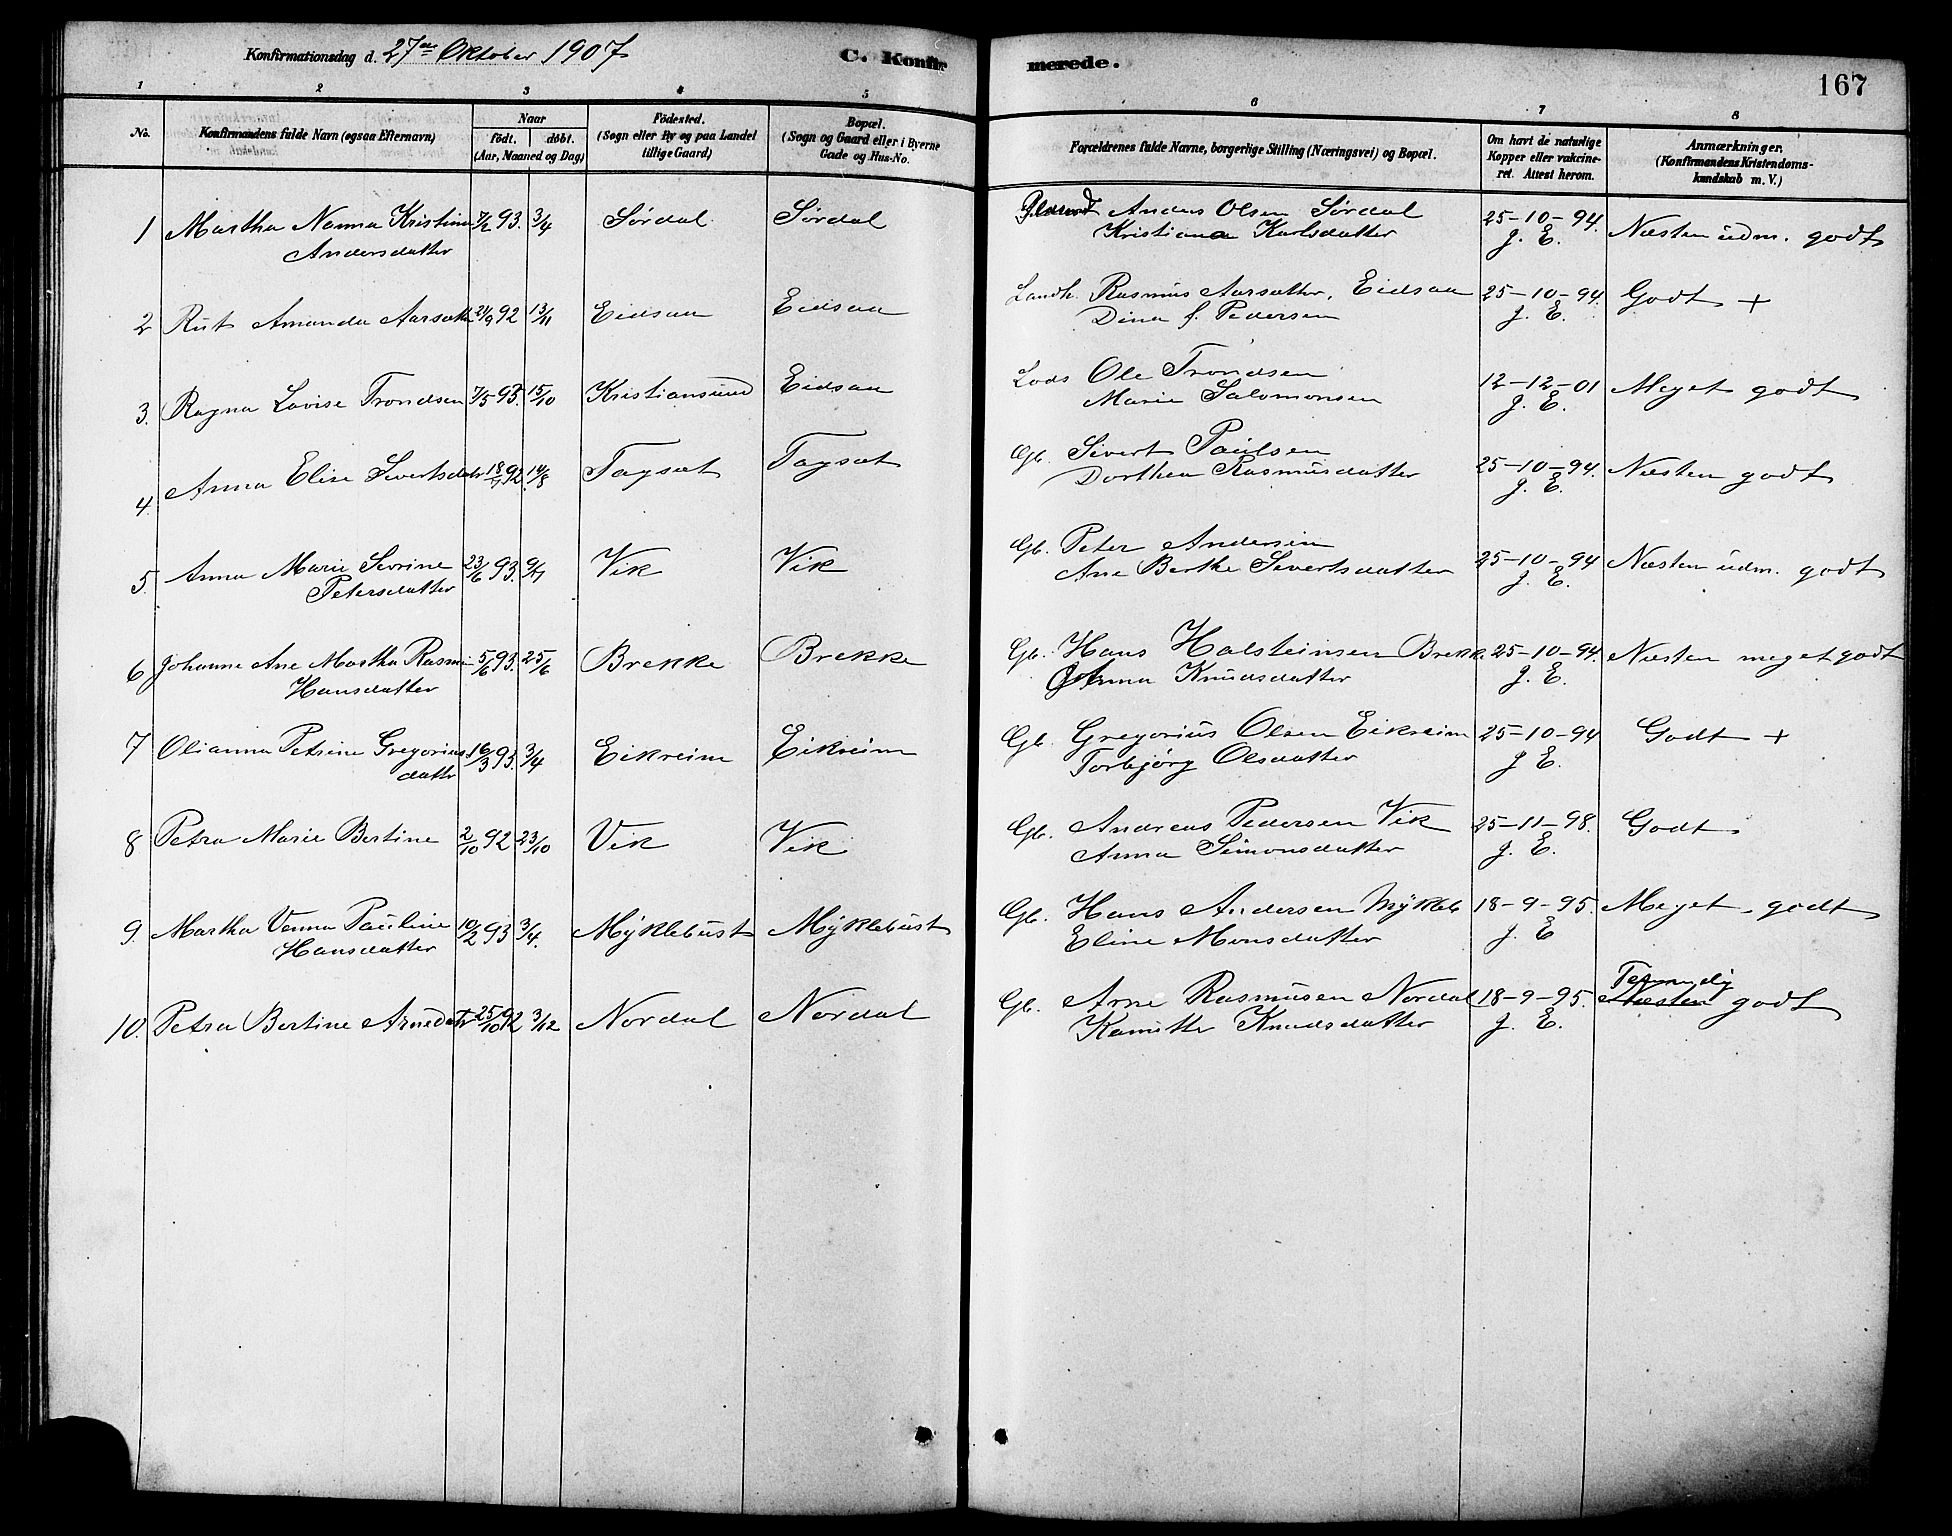 Konfirmationsdag d. 27de Oktober 1907
C. Konfirmerede.
167
1 2 3 4 5 6 7 8
No.
Konfirmandens fulde Navn (ogsaa Efternavn)
Naar
födt. döbt.
(Aar, Maaned og Dag)
Födested.
(Sogn eller By og paa Landet
tillige Gaard)
Bopæl.
(Sogn og Gaard eller i Byerne
Gade og Hus-No.
Forældrenes fulde Navne, borgerlige Stilling (Næringsvei) og Bopæl.
Om havt de naturlige
Kopper eller vakcine-
ret. Attest herom.
Anmærkninger.
(Konfirmandens Kristendoms-
kundskab m. V.)
1 Martha Nanna Kristine 7/2 93. 3/4 Sördal Sördal Anders Olsen Sördal 25-10-94. Næsten udm. godt
Andersdatter Kristiana Karlsdatter J. E.
2 Rut Amanda Aarsæther 21/9 92 13/11 Eidsaa Eidsaa Landh. Rasmus Aarsæther, Eidsaa 25-10-94. Godt +
Dina f. Pedersen J. E.
3. Ragna Lovise Trondsen 7/5 93. 15/10 Kristiansund Eidsaa Lods Ole Trondsen 12-12-01 Meget godt
Marie Salomonsen J. E.
4. Anna Elise Sivertsdatr 18/7 92 14/8 Tagsæt Tagsæt Gb. Sivert Paulsen 25-10-94. Næsten godt
Dorthea Rasmusdatter J. E.
5. Anna Marie Sevrine 23/6 93. 9/7 Vik Vik Gb. Peter Andersen 25-10-94 Næsten udm. godt
Petersdatter Ane Berthe Sivertsdatter J. E.
6 Johanne Ane Martha Rasmine 5/6 93. 25/6 Brekke Brekke Gb. Hans Halsteinsen Brekke 25-10-94. Næsten meget godt
Hansdatter Anna Knudsdatter J. E.
7 Olianna Petrine Gregorius 16/3 93. 3/4 Eikreim Eikreim Gb. Gregorius Olsen Eikreim 25-10-94 Godt +
datter Torbjörg Olsdatter J E.
8 Petra Marie Bertine 2/10 92 23/10 Vik Vik Gb. Andreas Pedersen Vik 25-11-98. Godt
Anna Simonsdatter J. E.
9. Martha Venna Pauline 10/2 93 3/4. Myklebust Myklebust Gb. Hans Andersen Mykleb 18-9-95. Meget godt
Hansdatter Eline Monsdatter J. E
10. Petra Bertine Arnedatr 25/10 92 3/12 Nordal Nordal Gb. Arne Rasmusen Nordal 18-9-95. Temmelig Næsten godt
Knudsdatter J. E.